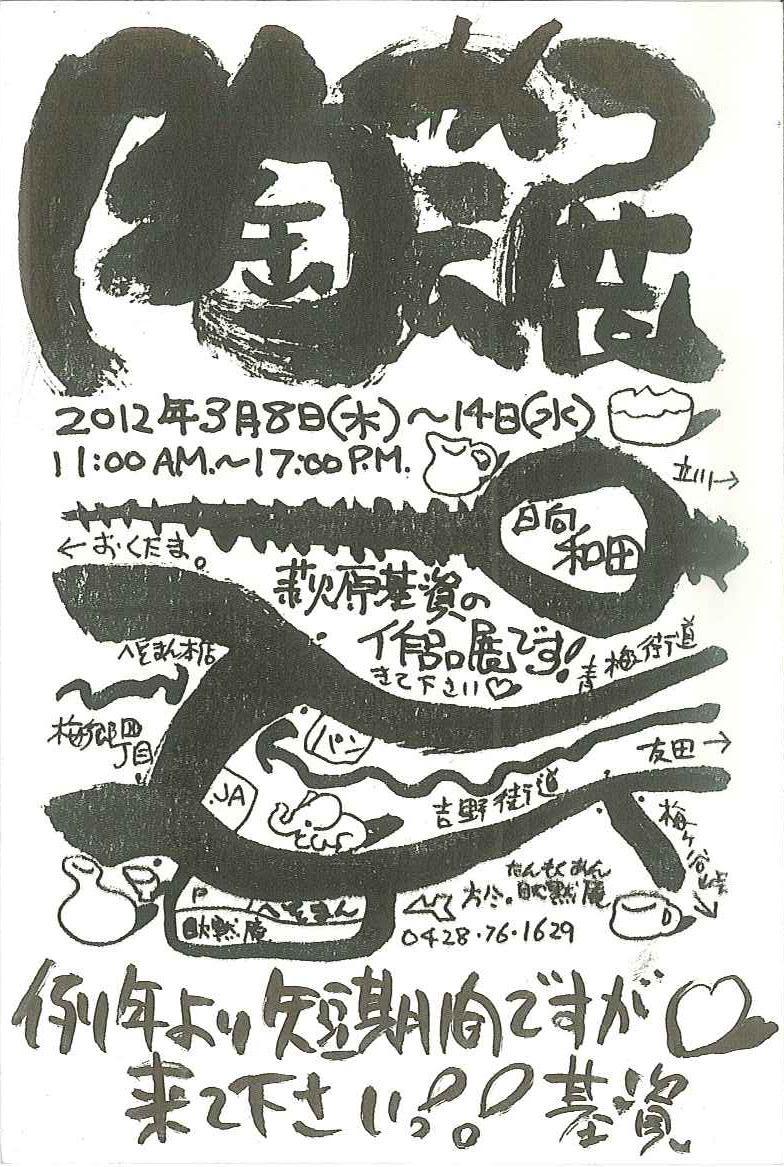 陶芸展
2012年3月8日(木)～14日(水)
11:00 A.M.～17:00 P.M.
立川→
日向
和田
←おくたま。
萩原基資の
作品展です!
きて下さい♡
青梅街道
へそまん本店
梅郷四
丁目
パン
友田→
JA
吉野街道
とひら
梅ヶ谷峠
たんもくあん
P へそまん
おれ。耽黙庵
耽黙庵
0428・76・1629
例年より短期間ですが
来て下さいっ!! 基資